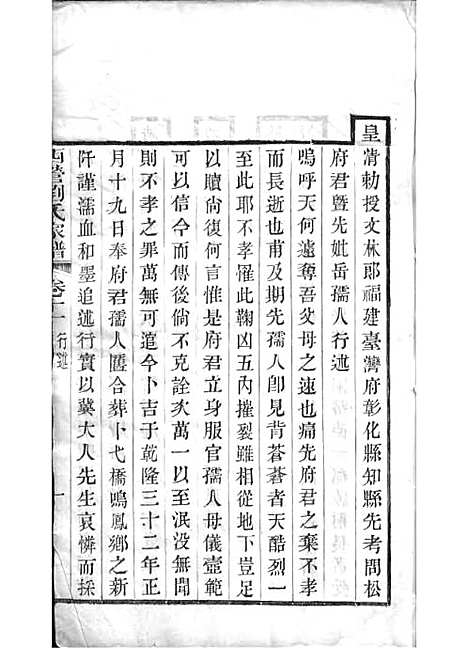 皇清勅授文林郎福建臺灣府彰化縣知縣先考問松
府君曁先妣岳孺人行述
嗚呼天何遽奪吾父母之速也痛先府君之棄不孝
而長逝也甫及期先孺人卽見背蒼蒼者天酷烈一
至此耶不孝罹此鞠凶五內摧裂雖相從地下豈足
以贖尙何言惟是府君立身服官孺人母儀壼範
可以信今而傳後倘不克詮次萬一以至泯没無聞
則不孝之罪萬無可逭今卜吉于乾隆三十二年正
月十九日奉府君孺人匶合葬卜弋橋鳴鳳鄉之新
阡謹濡血和墨追述行實以冀大人先生哀憐而採
西營劉氏家譜 卷十一 行述 一